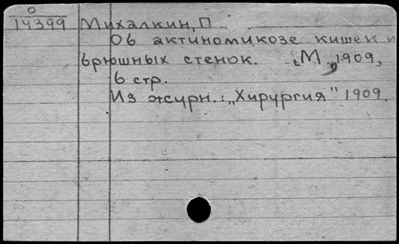 0
14399 Михалкин, П.
Об актиномикозе кишек и
брюшных стенок. М, 1909,
6 стр.
Из журн.: „Хирургия" 1909.